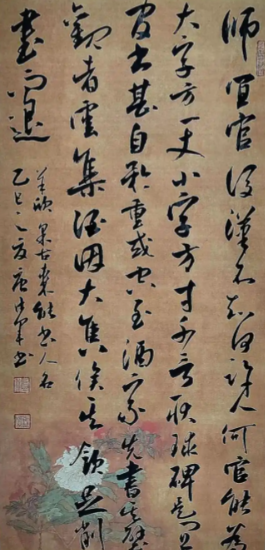 師宜官後漢不知何許人何官能為
大字方一丈小字方寸千言耿球碑是
官書甚自矜重或空至酒家先書其壁
觀者雲集酒因大售俟其飲足削
書而退
羊欣采古來能書人名
乙巳之夏唐書